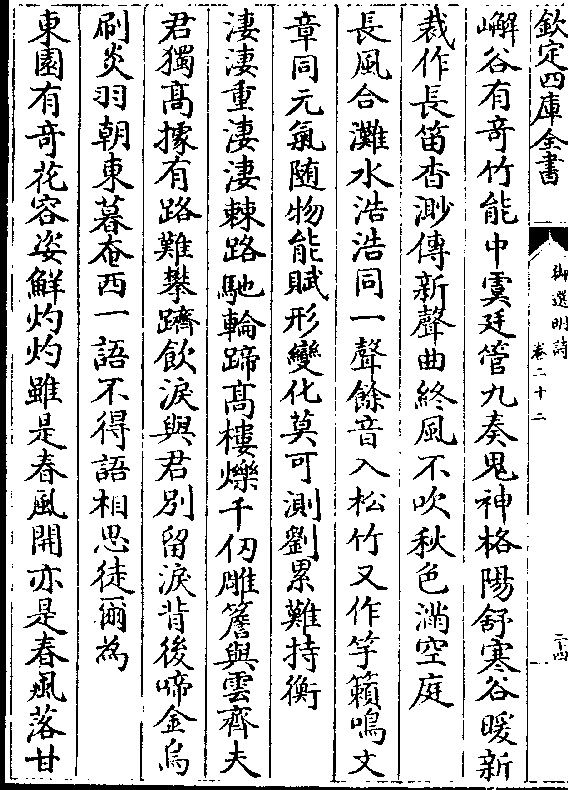 欽定四庫全書
御選明詩
卷二十二
二十四
嶰谷有竒竹能中虞廷管九奏鬼神格陽舒寒谷暖新
裁作長笛杳渺傳新聲曲終風不吹秋色滿空庭
長風合灘水浩浩同一聲餘音入松竹又作竽籟鳴文
章同元氣随物能賦形變化莫可測劉累難持衡
淒淒重淒淒棘路馳輪蹄髙樓爍千仞雕簷與雲齊夫
君獨髙據有路難攀躋飲淚與君别留淚背後啼金烏
刷炎羽朝東暮奄西一語不得語相思徒爾為
東園有竒花容姿鮮灼灼雖是春風開亦是春風落甘